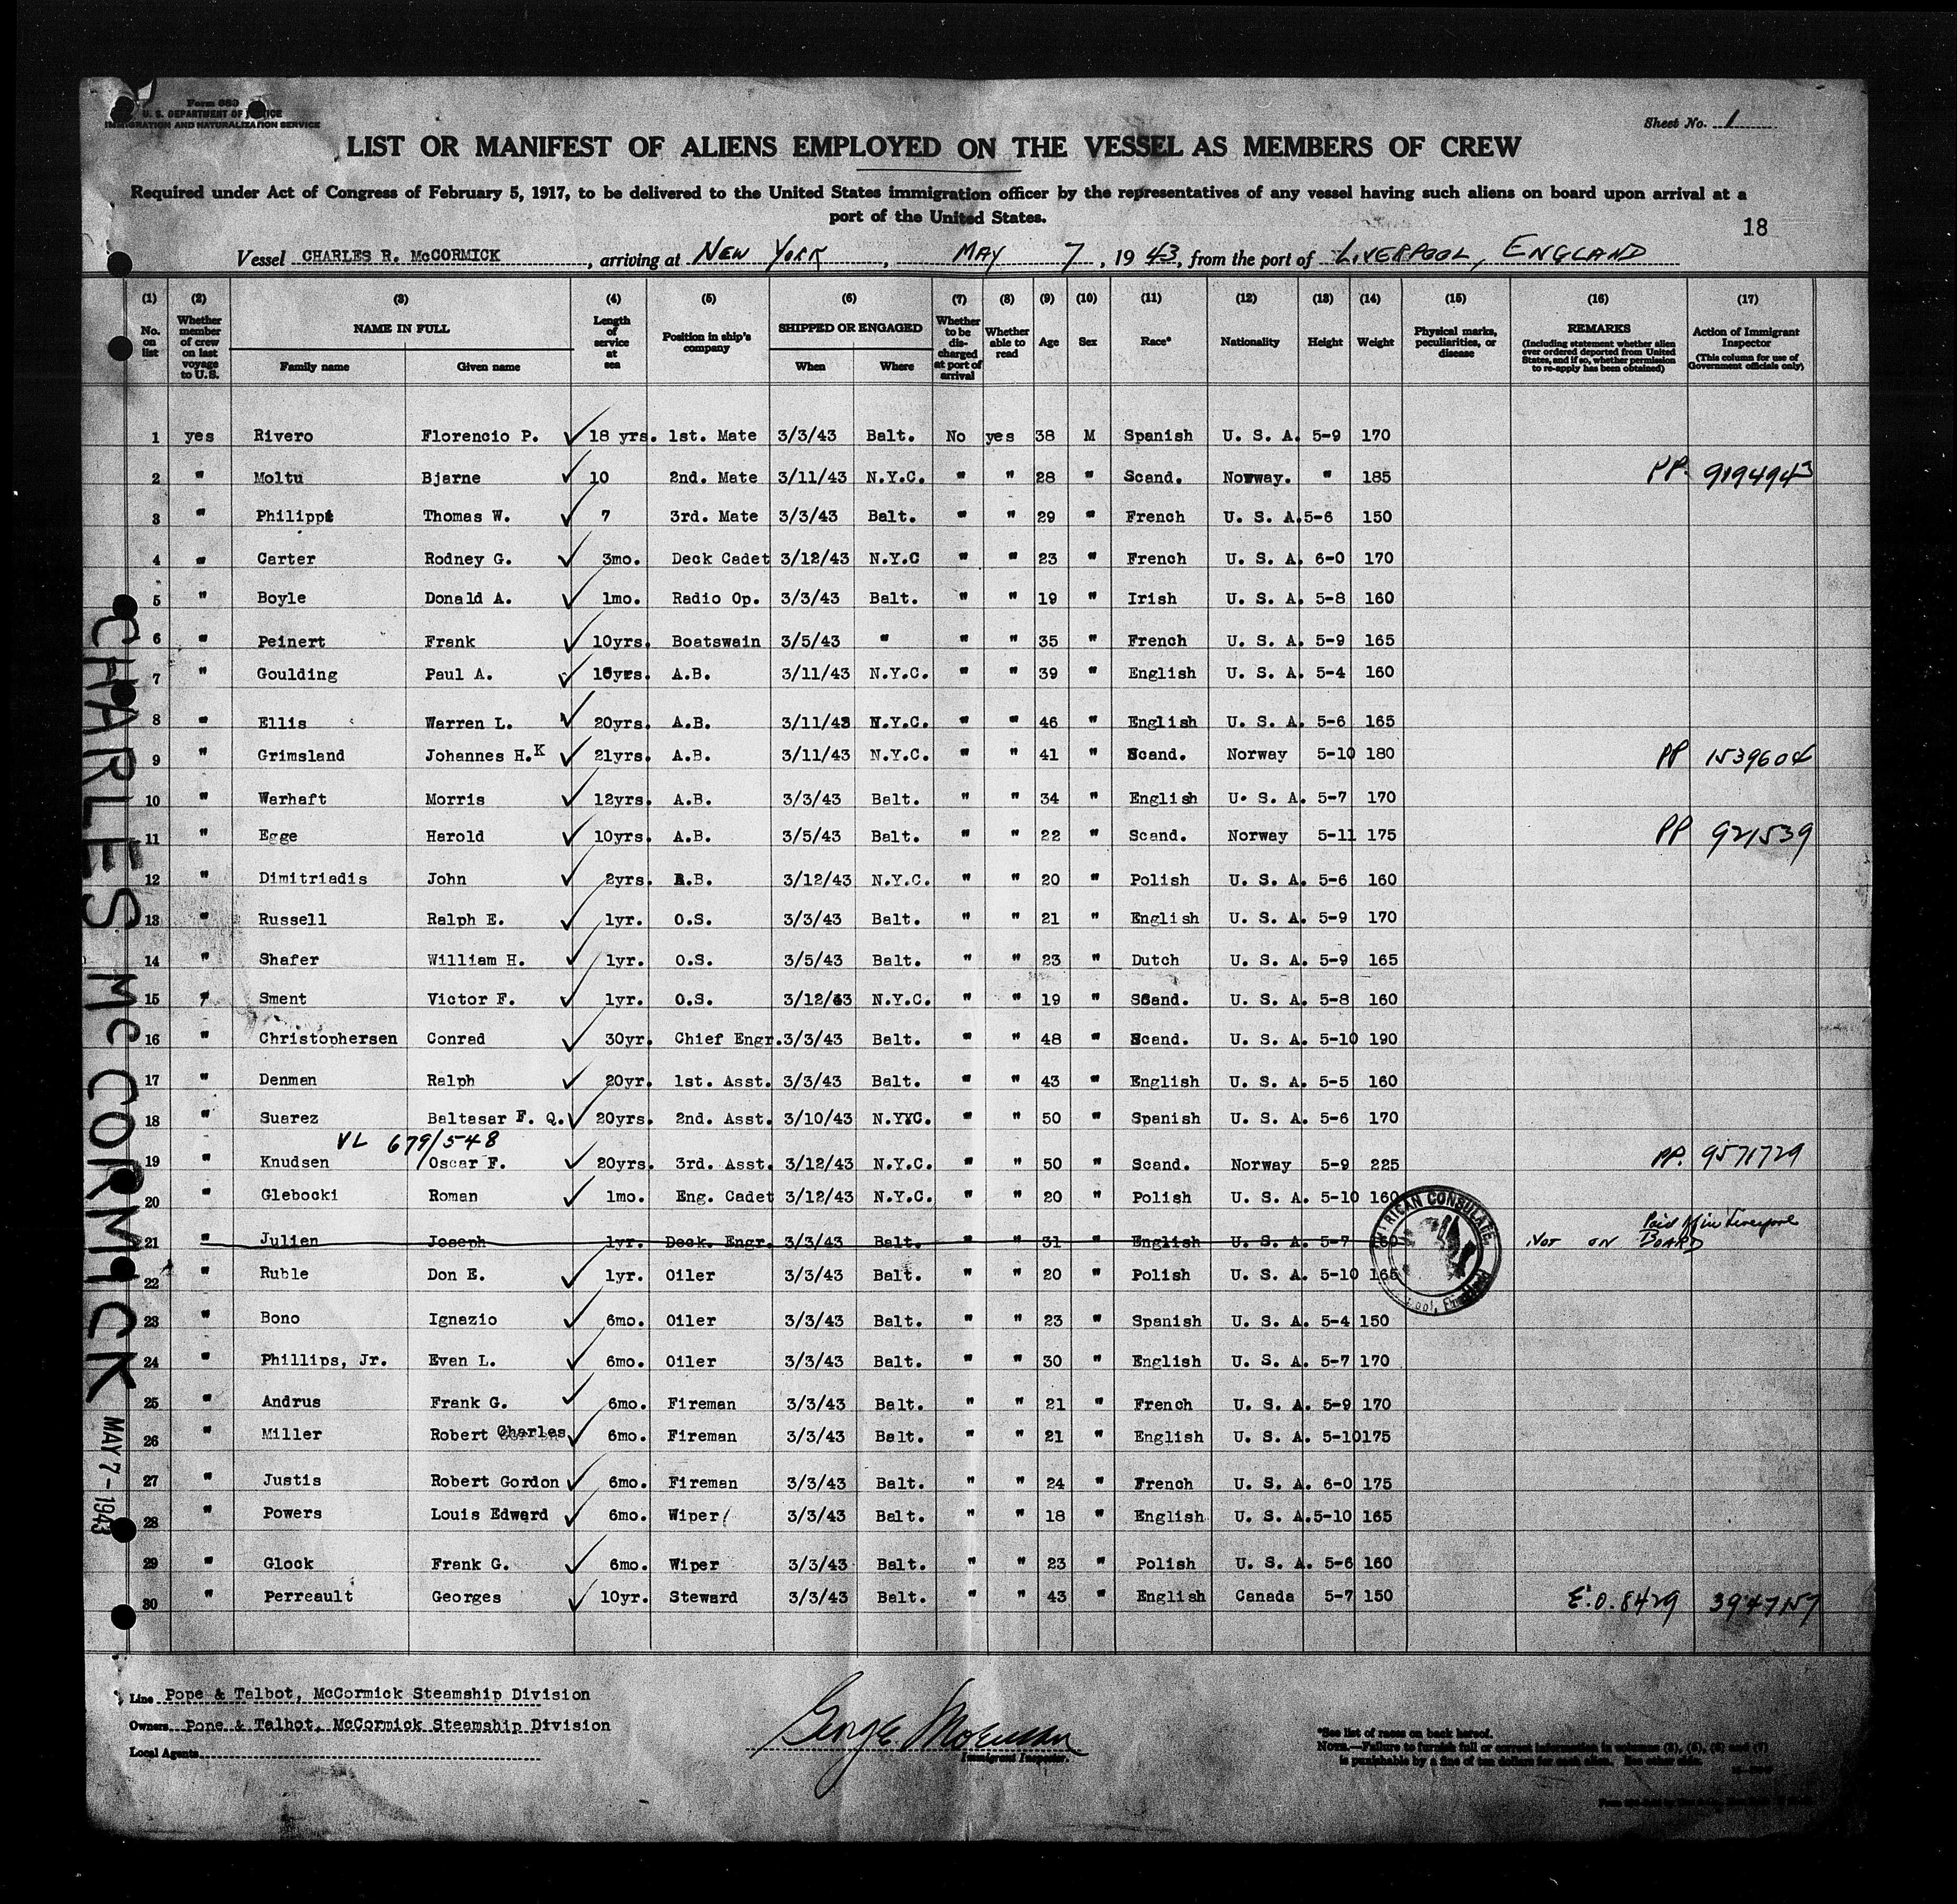 Form 680
U. S. DEPARTMENT OF JUSTICE
IMMIGRATION AND NATURALIZATION SERVICE
Sheet No. 1
LIST OR MANIFEST OF ALIENS EMPLOYED ON THE VESSEL AS MEMBERS OF CREW
Required under Act of Congress of February 5, 1917, to be delivered to the United States immigration officer by the representatives of any vessel having such aliens on board upon arrival at a
port of the United States.
18
Vessel CHARLES R. McCORMICK, arriving at NEW YORK, MAY 7, 1943, from the port of LIVERPOOL, ENGLAND
(1) (2) (3) (4) (5) (6) (7) (8) (9) (10) (11) (12) (13) (14) (15) (16) (17)
No. on list
Whether member of crew on last voyage to U.S.
NAME IN FULL
Family name Given name
Length of service at sea
Position in ship's company
SHIPPED OR ENGAGED
When Where
Whether to be discharged at port of arrival
Whether able to read
Age
Sex
Race*
Nationality
Height
Weight
Physical marks, peculiarities, or disease
REMARKS
(Including statement whether alien ever ordered deported from United States, and if so, whether permission to re-apply has been obtained)
Action of Immigrant Inspector
(This column for use of Government officials only)
1 yes Rivero Florencio P. ✓ 18 yrs. 1st. Mate 3/3/43 Balt. No yes 38 M Spanish U. S. A. 5-9 170
2 " Moltu Bjarne ✓ 10 2nd. Mate 3/11/43 N.Y.C. " " 28 " Scand. Norway. " 185 PP. 9194943
3 " Philippi Thomas W. ✓ 7 3rd. Mate 3/3/43 Balt. " " 29 " French U. S. A. 5-6 150
4 " Carter Rodney G. ✓ 3mo. Deck Cadet 3/12/43 N.Y.C " " 23 " French U. S. A. 6-0 170
5 " Boyle Donald A. ✓ 1mo. Radio Op. 3/3/43 Balt. " " 19 " Irish U. S. A. 5-8 160
6 " Peinert Frank ✓ 10yrs. Boatswain 3/5/43 " " " 35 " French U. S. A. 5-9 165
7 " Goulding Paul A. ✓ 16yrs. A.B. 3/11/43 N.Y.C. " " 39 " English U. S. A. 5-4 160
8 " Ellis Warren L. ✓ 20yrs. A.B. 3/11/43 N.Y.C. " " 46 " English U. S. A. 5-6 165
9 " Grimsland Johannes H.K ✓ 21yrs. A.B. 3/11/43 N.Y.C. " " 41 " Scand. Norway 5-10 180 PP 1539604
10 " Warhaft Morris ✓ 12yrs. A.B. 3/3/43 Balt. " " 34 " English U. S. A. 5-7 170
11 " Egge Harold ✓ 10yrs. A.B. 3/5/43 Balt. " " 22 " Scand. Norway 5-11 175 PP 921539
12 " Dimitriadis John ✓ 2yrs. A.B. 3/12/43 N.Y.C. " " 20 " Polish U. S. A. 5-6 160
13 " Russell Ralph E. ✓ 1yr. O.S. 3/3/43 Balt. " " 21 " English U. S. A. 5-9 170
14 " Shafer William H. ✓ 1yr. O.S. 3/5/43 Balt. " " 23 " Dutch U. S. A. 5-9 165
15 " Sment Victor F. ✓ 1yr. O.S. 3/12/43 N.Y.C. " " 19 " Scand. U. S. A. 5-8 160
16 " Christophersen Conrad ✓ 30yr. Chief Engr. 3/3/43 Balt. " " 48 " Scand. U. S. A. 5-10 190
17 " Denman Ralph ✓ 20yr. 1st. Asst. 3/3/43 Balt. " " 43 " English U. S. A. 5-5 160
18 " Suarez Baltasar F. Q. ✓ 20yrs. 2nd. Asst. 3/10/43 N.YYC. " " 50 " Spanish U. S. A. 5-6 170
VL 679/548
19 " Knudsen Oscar F. ✓ 20yrs. 3rd. Asst. 3/12/43 N.Y.C. " " 50 " Scand. Norway 5-9 225 PP. 9571729
20 " Glebocki Roman ✓ 1mo. Eng. Cadet 3/12/43 N.Y.C. " " 20 " Polish U. S. A. 5-10 160
Paid off in Liverpool
21 " Julien Joseph 1yr. Deck. Engr. 3/3/43 Balt. " 31 " English U. S. A. 5-7 160 NOT ON BOARD
AMERICAN CONSULATE
22 " Ruble Don E. ✓ 1yr. Oiler 3/3/43 Balt. " " 20 " Polish U. S. A. 5-10 165
23 " Bono Ignazio ✓ 6mo. Oiler 3/3/43 Balt. " " 23 " Spanish U. S. A. 5-4 150
24 " Phillips, Jr. Evan L. ✓ 6mo. Oiler 3/3/43 Balt. " " 30 " English U. S. A. 5-7 170
25 " Andrus Frank G. ✓ 6mo. Fireman 3/3/43 Balt. " " 21 " French U. S. A. 5-9 170
26 " Miller Robert Charles ✓ 6mo. Fireman 3/3/43 Balt. " " 21 " English U. S. A. 5-10 175
27 " Justis Robert Gordon ✓ 6mo. Fireman 3/3/43 Balt. " " 24 " French U. S. A. 6-0 175
28 " Powers Louis Edward ✓ 6mo. Wiper 3/3/43 Balt. " " 18 " English U. S. A. 5-10 165
29 " Glock Frank G. ✓ 6mo. Wiper 3/3/43 Balt. " " 23 " Polish U. S. A. 5-6 160
30 " Perreault Georges ✓ 10yr. Steward 3/3/43 Balt. " " 43 " English Canada 5-7 150 E.O. 8429 3947157
CHARLES Mc CORMICK MAY 7-1943
Line Pope & Talbot, McCormick Steamship Division
Owners Pope & Talbot, McCormick Steamship Division
Local Agents
George
Immigrant Inspector.
*See list of races on back hereof.
NOTE.—Failure to furnish full or correct information in columns (3), (5), (6) and (7)
is punishable by a fine of ten dollars for each alien. See other side.